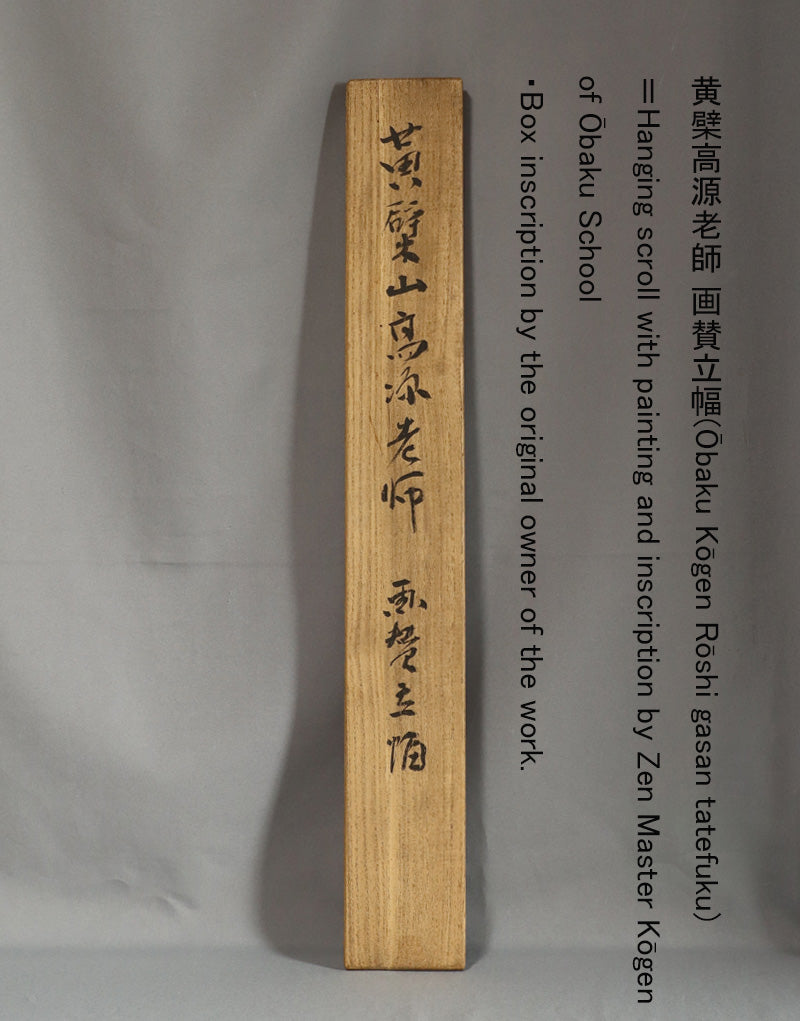 黄檗高源老師 画賛立幅(Ōbaku Kōgen Rōshi gasan tatefuku)
＝Hanging scroll with painting and inscription by Zen Master Kōgen
of Ōbaku School
・Box inscription by the original owner of the work.
黄檗山高源老師 画賛立幅